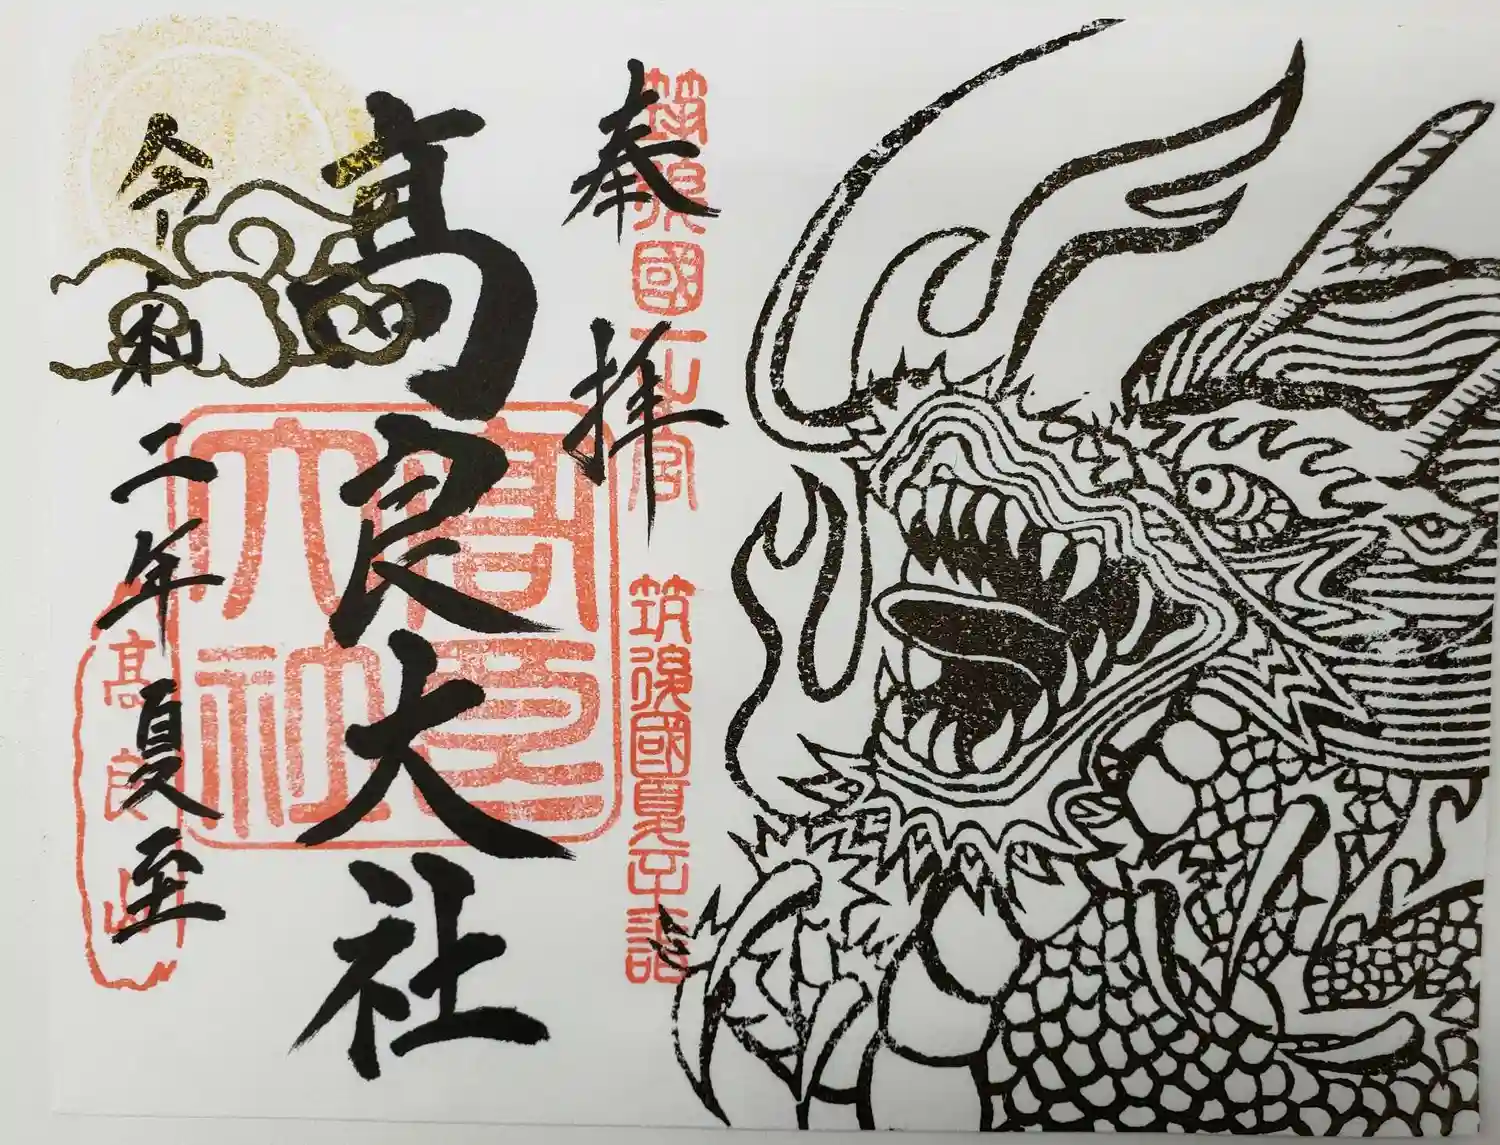 奉拝
筑後國一之宮
筑後國惣社高良
高良大社
高良大社
令和二年夏至
高良山